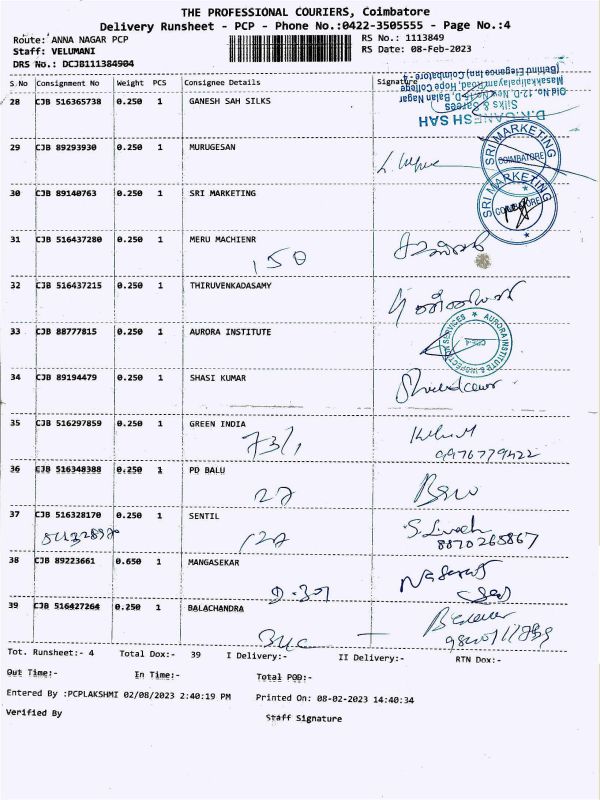 THE PROFESSIONAL COURIERS, Coimbatore
Delivery Runsheet - PCP - Phone No.:0422-3505555 - Page No.:4
Route: ANNA NAGAR PCP RS No.: 1113849
Staff: VELUMANI RS Date: 08-Feb-2023
DRS No.: DCJB111384904
S.No Consignment No Weight PCS Consignee Details Signature
D.K.GANESH SAH
Silks & Sarees
(Behind Elegance Inn) Coimbatore - 4
28 CJB 516365738 0.250 1 GANESH SAH SILKS
29 CJB 89293930 0.250 1 MURUGESAN
SRI MARKETING
COIMBATORE
30 CJB 89140763 0.250 1 SRI MARKETING
SRI MARKETING
COIMBATORE
31 CJB 516437280 0.250 1 MERU MACHIENR
150
32 CJB 516437215 0.250 1 THIRUVENKADASAMY
33 CJB 88777815 0.250 1 AURORA INSTITUTE
AURORA INSTITUTE & INSPECTION SERVICES
34 CJB 89194479 0.250 1 SHASI KUMAR
35 CJB 516297859 0.250 1 GREEN INDIA
73/1
9976779422
36 CJB 516348388 0.250 1 PD BALU
22
37 CJB 516328170 0.250 1 SENTIL
122
8870265867
38 CJB 89223661 0.650 1 MANGASEKAR
39 CJB 516427264 0.250 1 BALACHANDRA
Tot. Runsheet:- 4 Total Dox:- 39 I Delivery:- II Delivery:- RTN Dox:-
Out Time:- In Time:- Total POD:-
Entered By :PCPLAKSHMI 02/08/2023 2:40:19 PM Printed On: 08-02-2023 14:40:34
Verified By Staff Signature